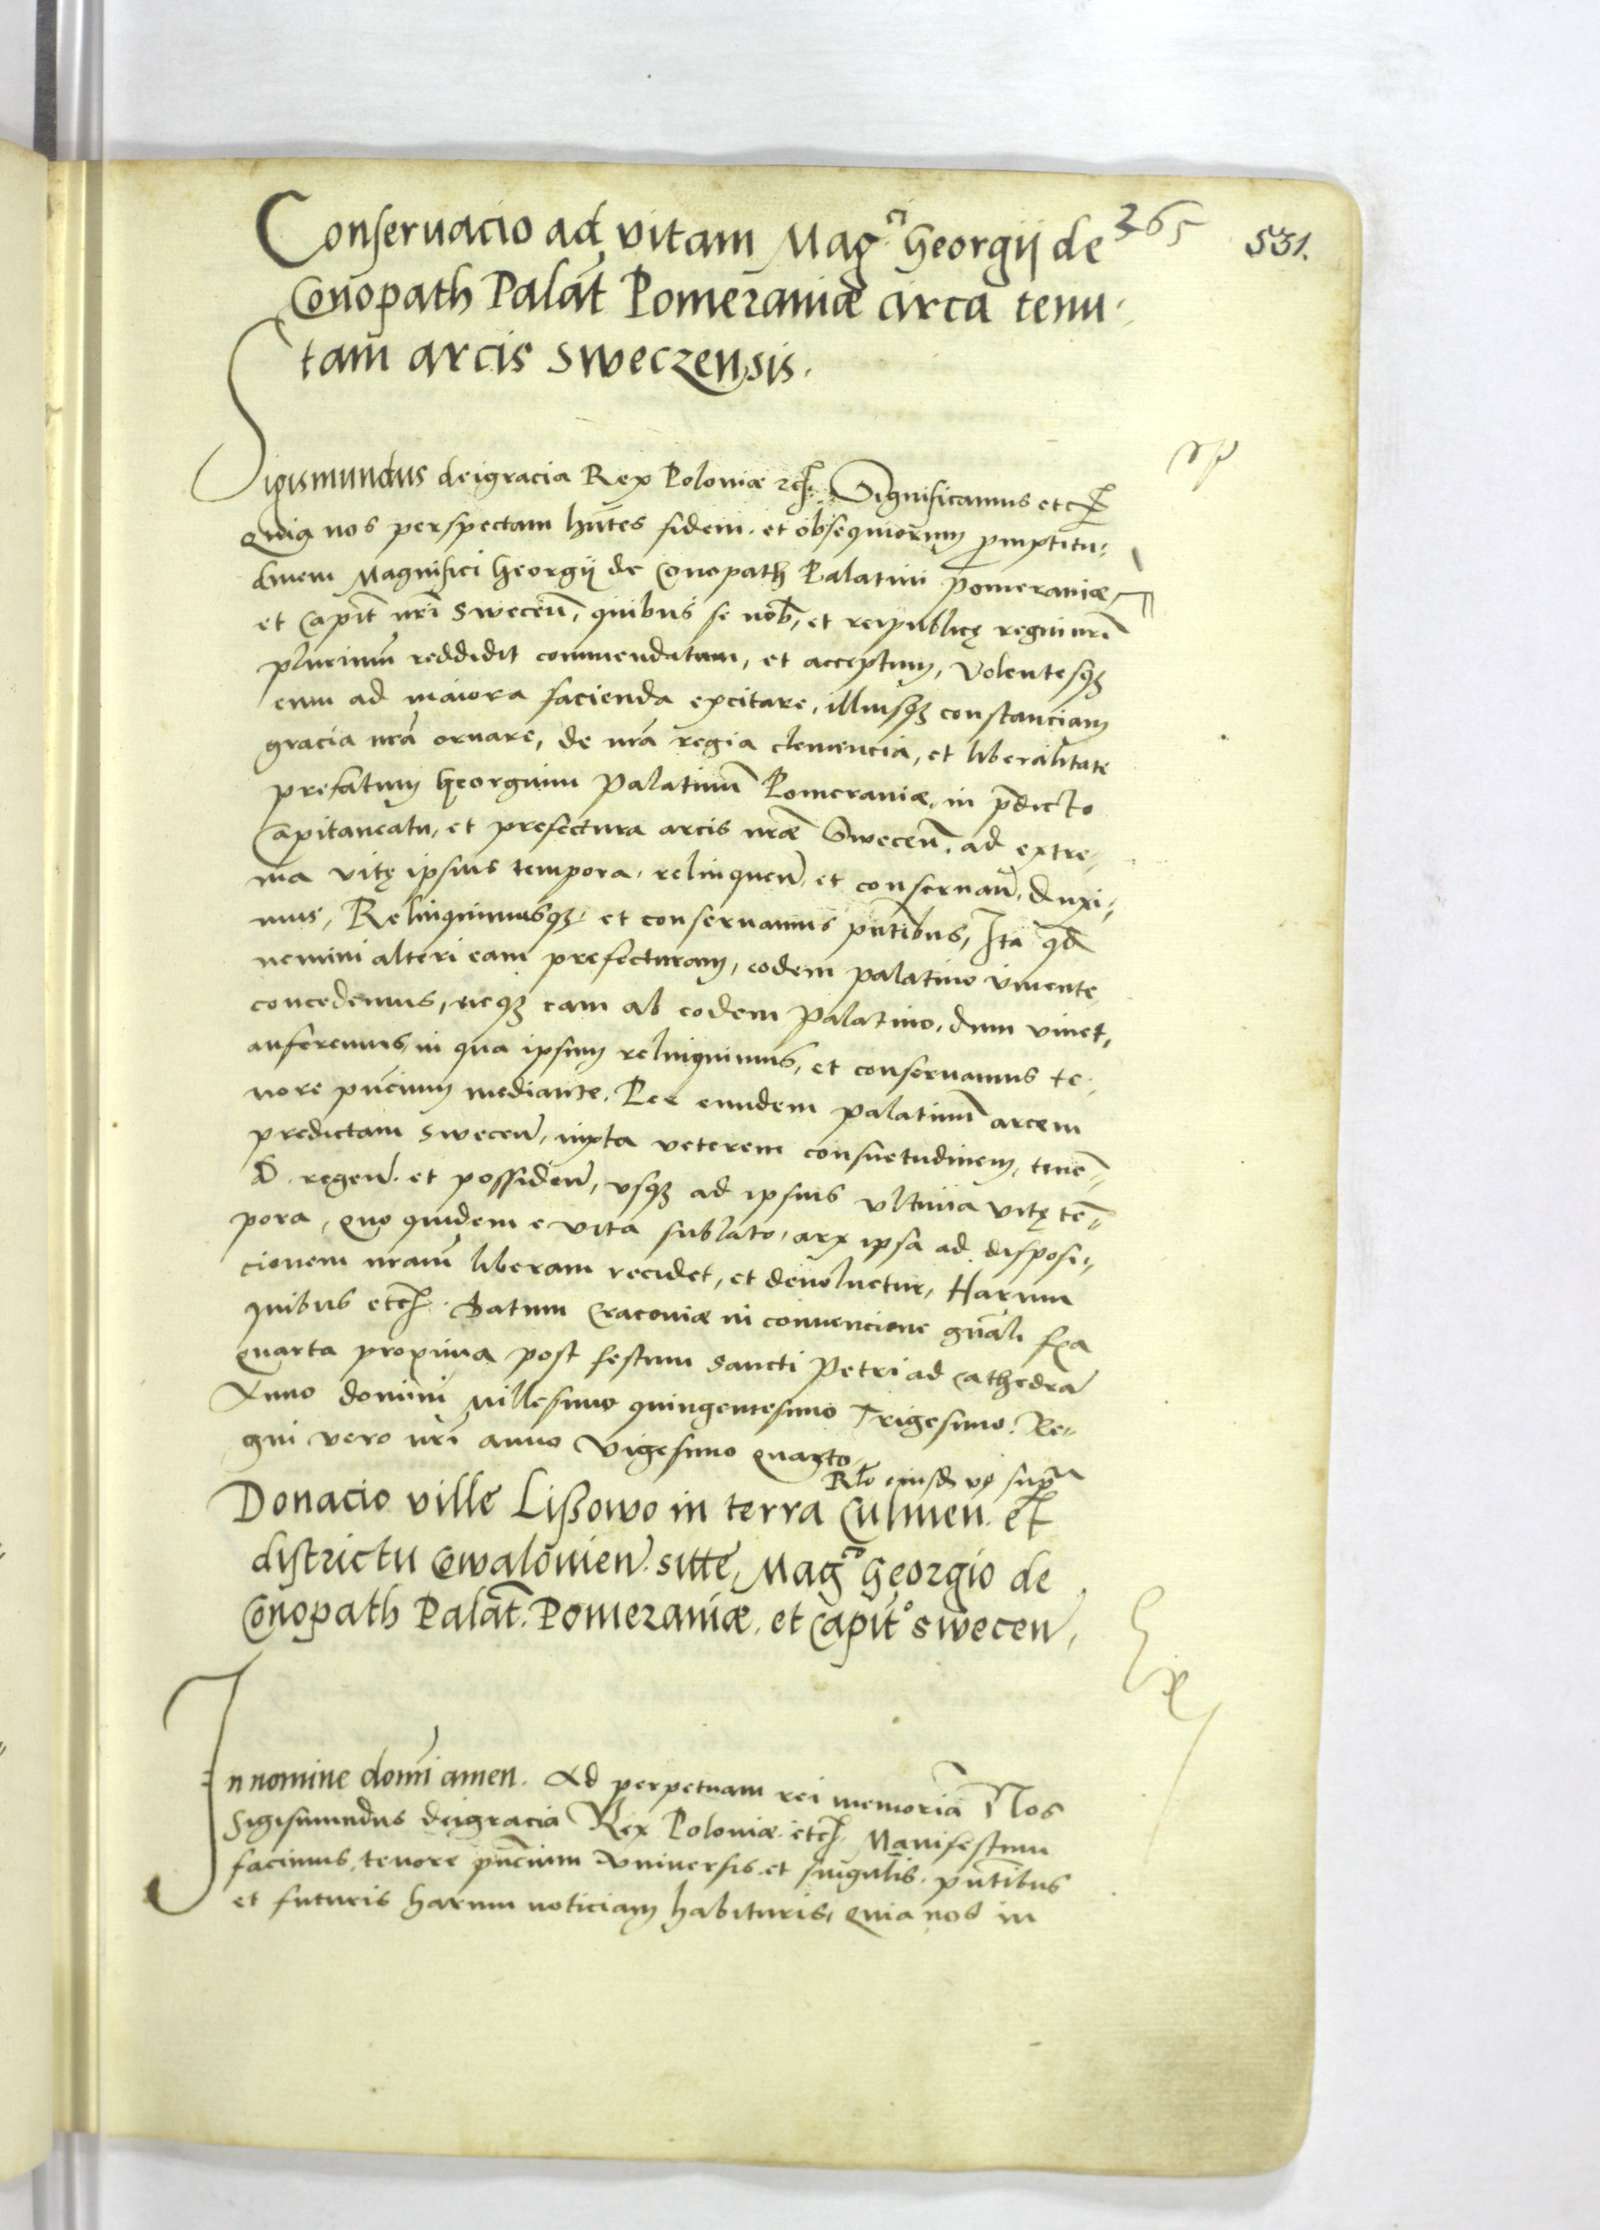 Conseruacio ad vitam Mag.ci Georgij de 265 531.
Conopath Palat̄ Pomeraniæ circa tenu-
tam arcis Sweczensis.
Sigismundus dei gracia Rex Poloniæ etc̄. Significamus etc̄
Quia nos perspectam hn̄tes fidem, et obsequiorum promptitu-
dinem Magnifici Georgij de Conopath Palatini Pomeraniæ
et Capit̄ nr̄i Swecen̄, quibus se nob̄, et reipublicę regni nr̄i
plurimū reddidit commendatum, et acceptum, Volentesq̨
eum ad maiora facienda excitare, illiusq̨ constanciam
gracia nr̄a ornare, de nr̄a regia clemencia, et liberalitate
prefatum Georgium Palatinū Pomeraniæ, in p̄dicto
Capitaneatu, et prefectura arcis nr̄æ Swecen̄, ad extre-
ma vitę ipsius tempora, relinquen̄, et conseruan̄, duxi-
mus, Relinquimusq̨ et conseruamus pn̄tibus, Ita q̄d
nemini alteri eam prefecturam, eodem palatino viuente
concedemus, neq̨ eam ab eodem Palatino, dum viuet,
auferemus, in qua ipsum relinquimus, et conseruamus te-
nore pn̄cium mediante. Per eundem palatinū arcem
predictam Swecen̄, iuxta veterem consuetudinem, tenē-
d. regen̄. et possiden̄, vsq̨ ad ipsius vltima vitę tē-
pora, Quo quidem e vita sublato, arx ipsa ad disposi-
cionem nr̄am liberam recidet, et deuoluetur, Harum
quibus etc̄. Datum Cracoviæ in conuencione gn̄ali fr̄ia
quarta proxima post festum Sancti Petri ad Cathedrā
Anno domini Millesimo quingentesimo Trigesimo. Re-
gni vero nr̄i anno Vigesimo quarto.
Rl̄o eiusd̄ vt̄ supra
Donacio ville Lißowo in terra Culmen. et
districtu Cowalouien̄. sitte, Mag.co Georgio de
Conopath Palat̄. Pomeraniæ. et Capit̊ Swecen̄,
In nomine domi̅ amen. Ad perpetuam rei memoriā Nos
Sigismundus dei gracia Rex Poloniæ. etc̄. Manifestum
facimus, tenore pn̄cium Vniuersis. et singulis. pn̄tibus
et futuris harum noticiam habituris, Quia nos in